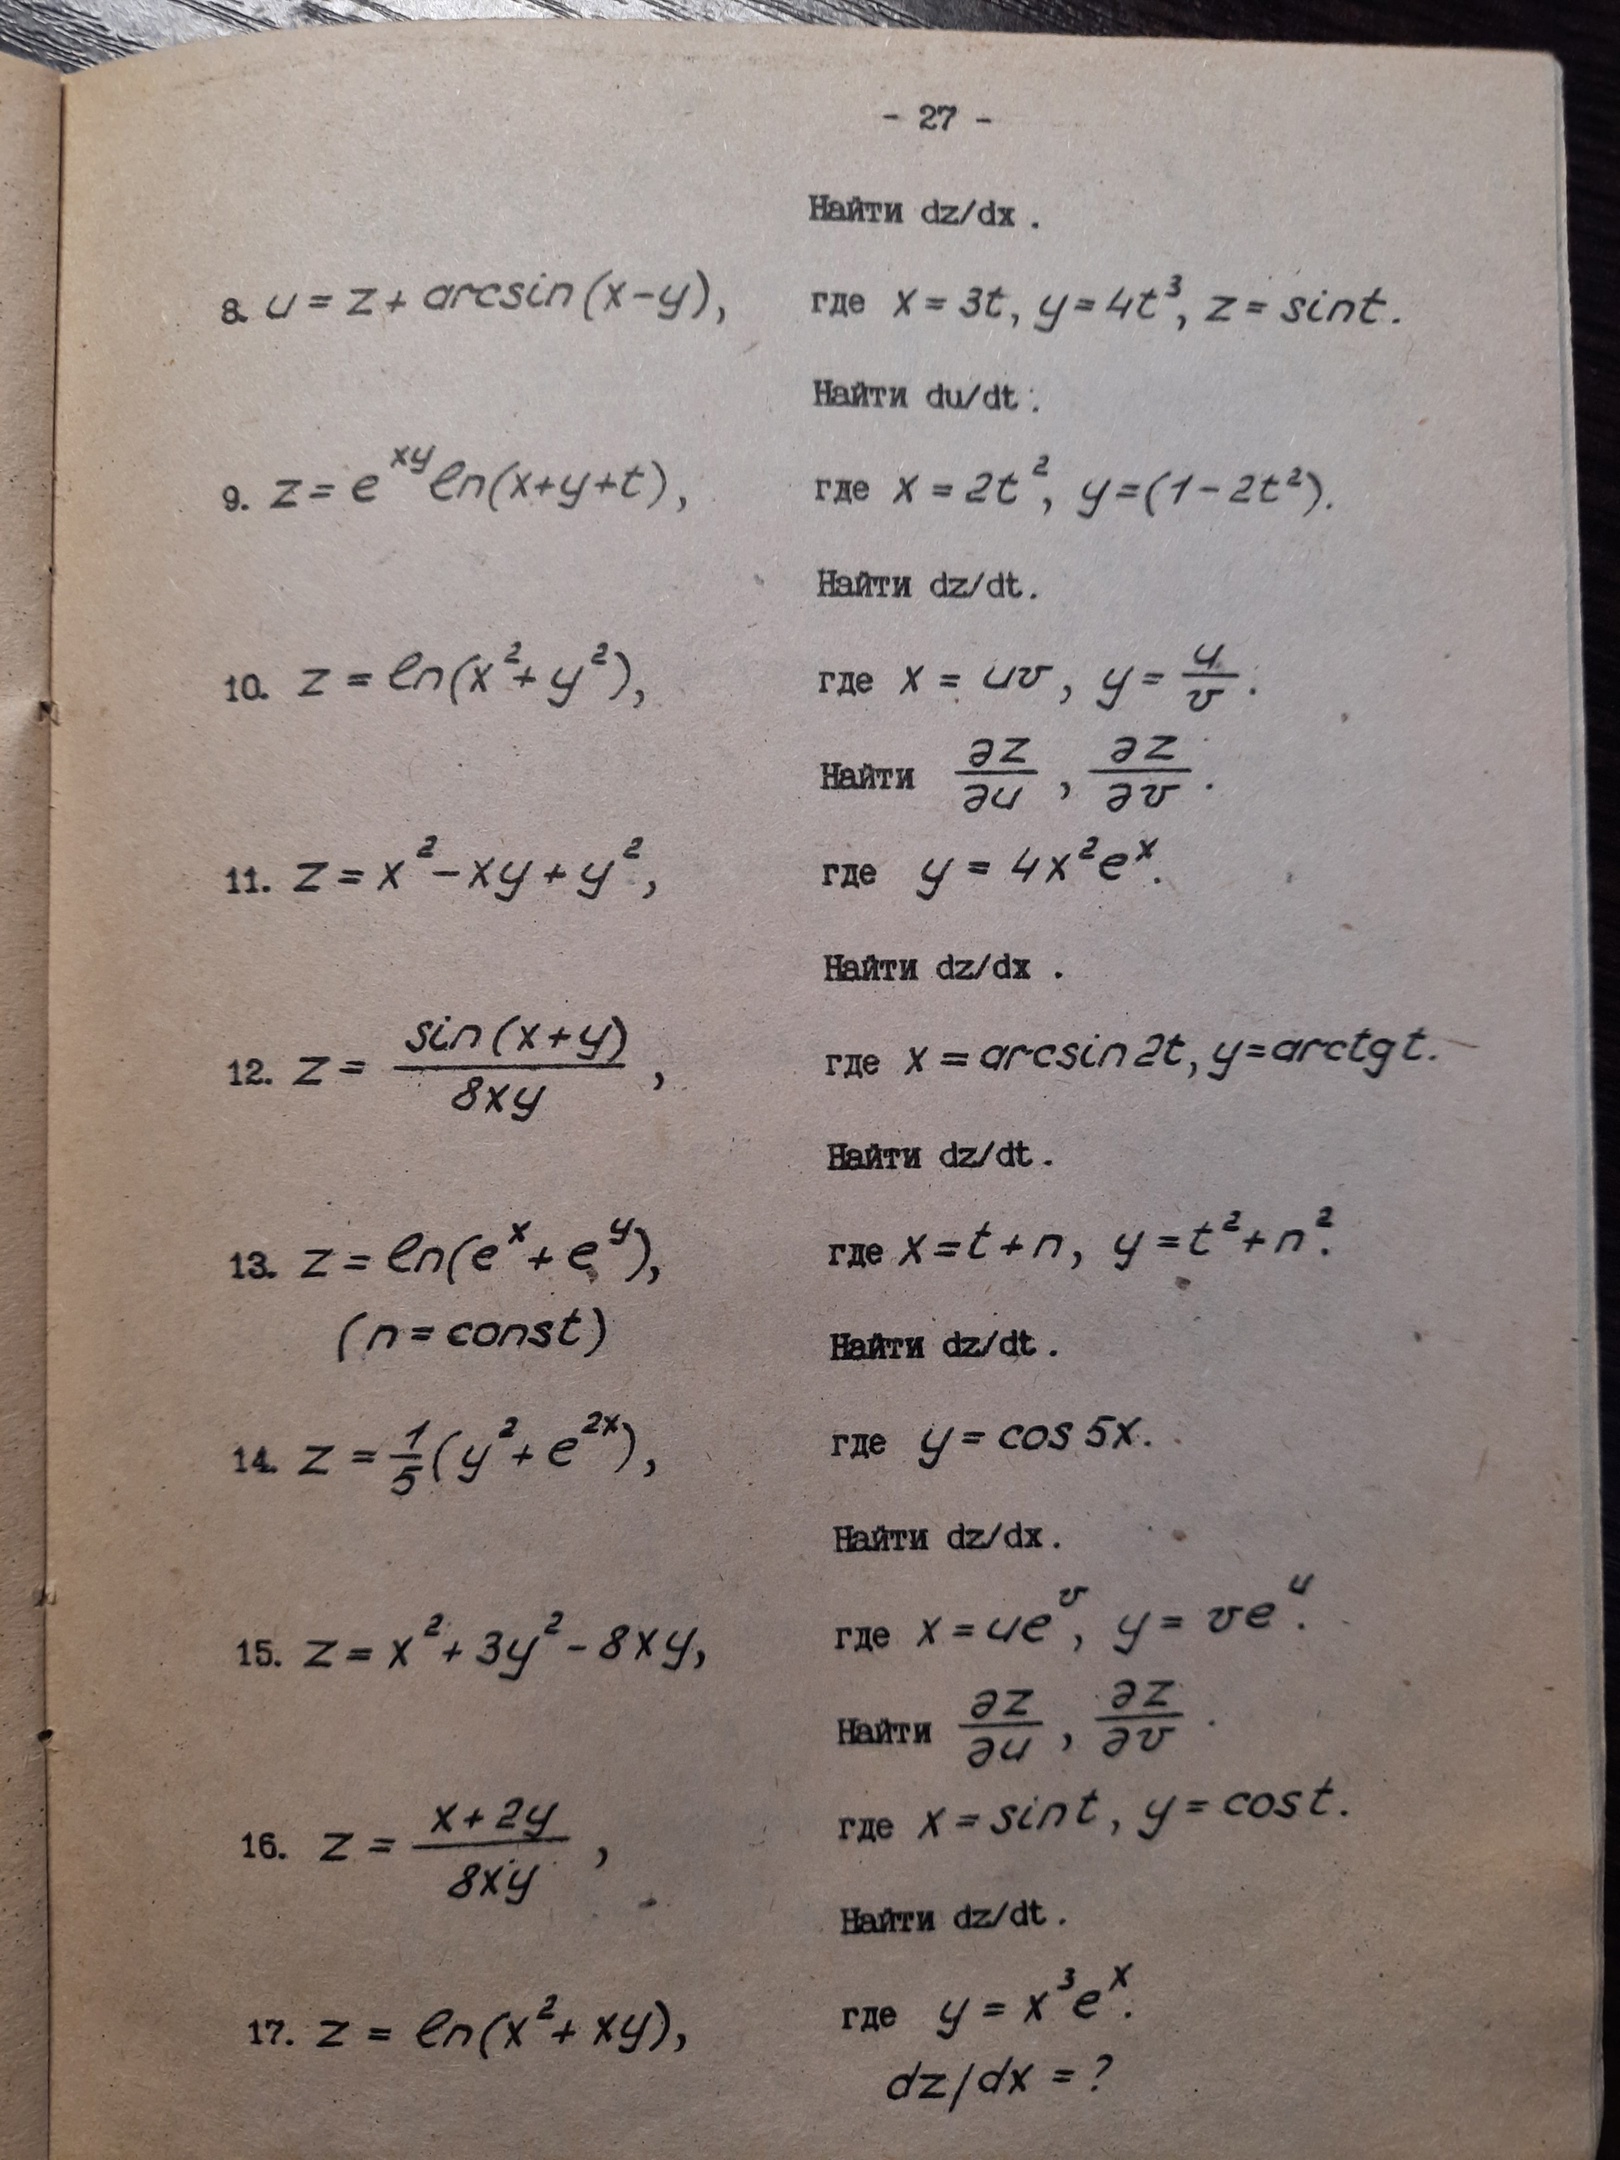 - 27 -
Найти dz/dx.
8. u = z + arcsin(x-y), где x = 3t, y = 4t³, z = sint.
Найти du/dt.
9. z = e^{xy} ln(x+y+t), где x = 2t², y = (1-2t²).
Найти dz/dt.
10. z = ln(x²+y²), где x = uv, y = u/v.
Найти ∂z/∂u, ∂z/∂v.
11. z = x² - xy + y², где y = 4x²e^x.
Найти dz/dx.
12. z = sin(x+y)/8xy, где x = arcsin2t, y = arctgt.
Найти dz/dt.
13. z = ln(e^x + e^y), где x = t+n, y = t²+n².
(n = const) Найти dz/dt.
14. z = 1/5(y² + e^{2x}), где y = cos5x.
Найти dz/dx.
15. z = x² + 3y² - 8xy, где x = ue^v, y = ve^u.
Найти ∂z/∂u, ∂z/∂v.
16. z = x+2y/8xy, где x = sint, y = cost.
Найти dz/dt.
17. z = ln(x² + xy), где y = x³e^x.
dz/dx = ?